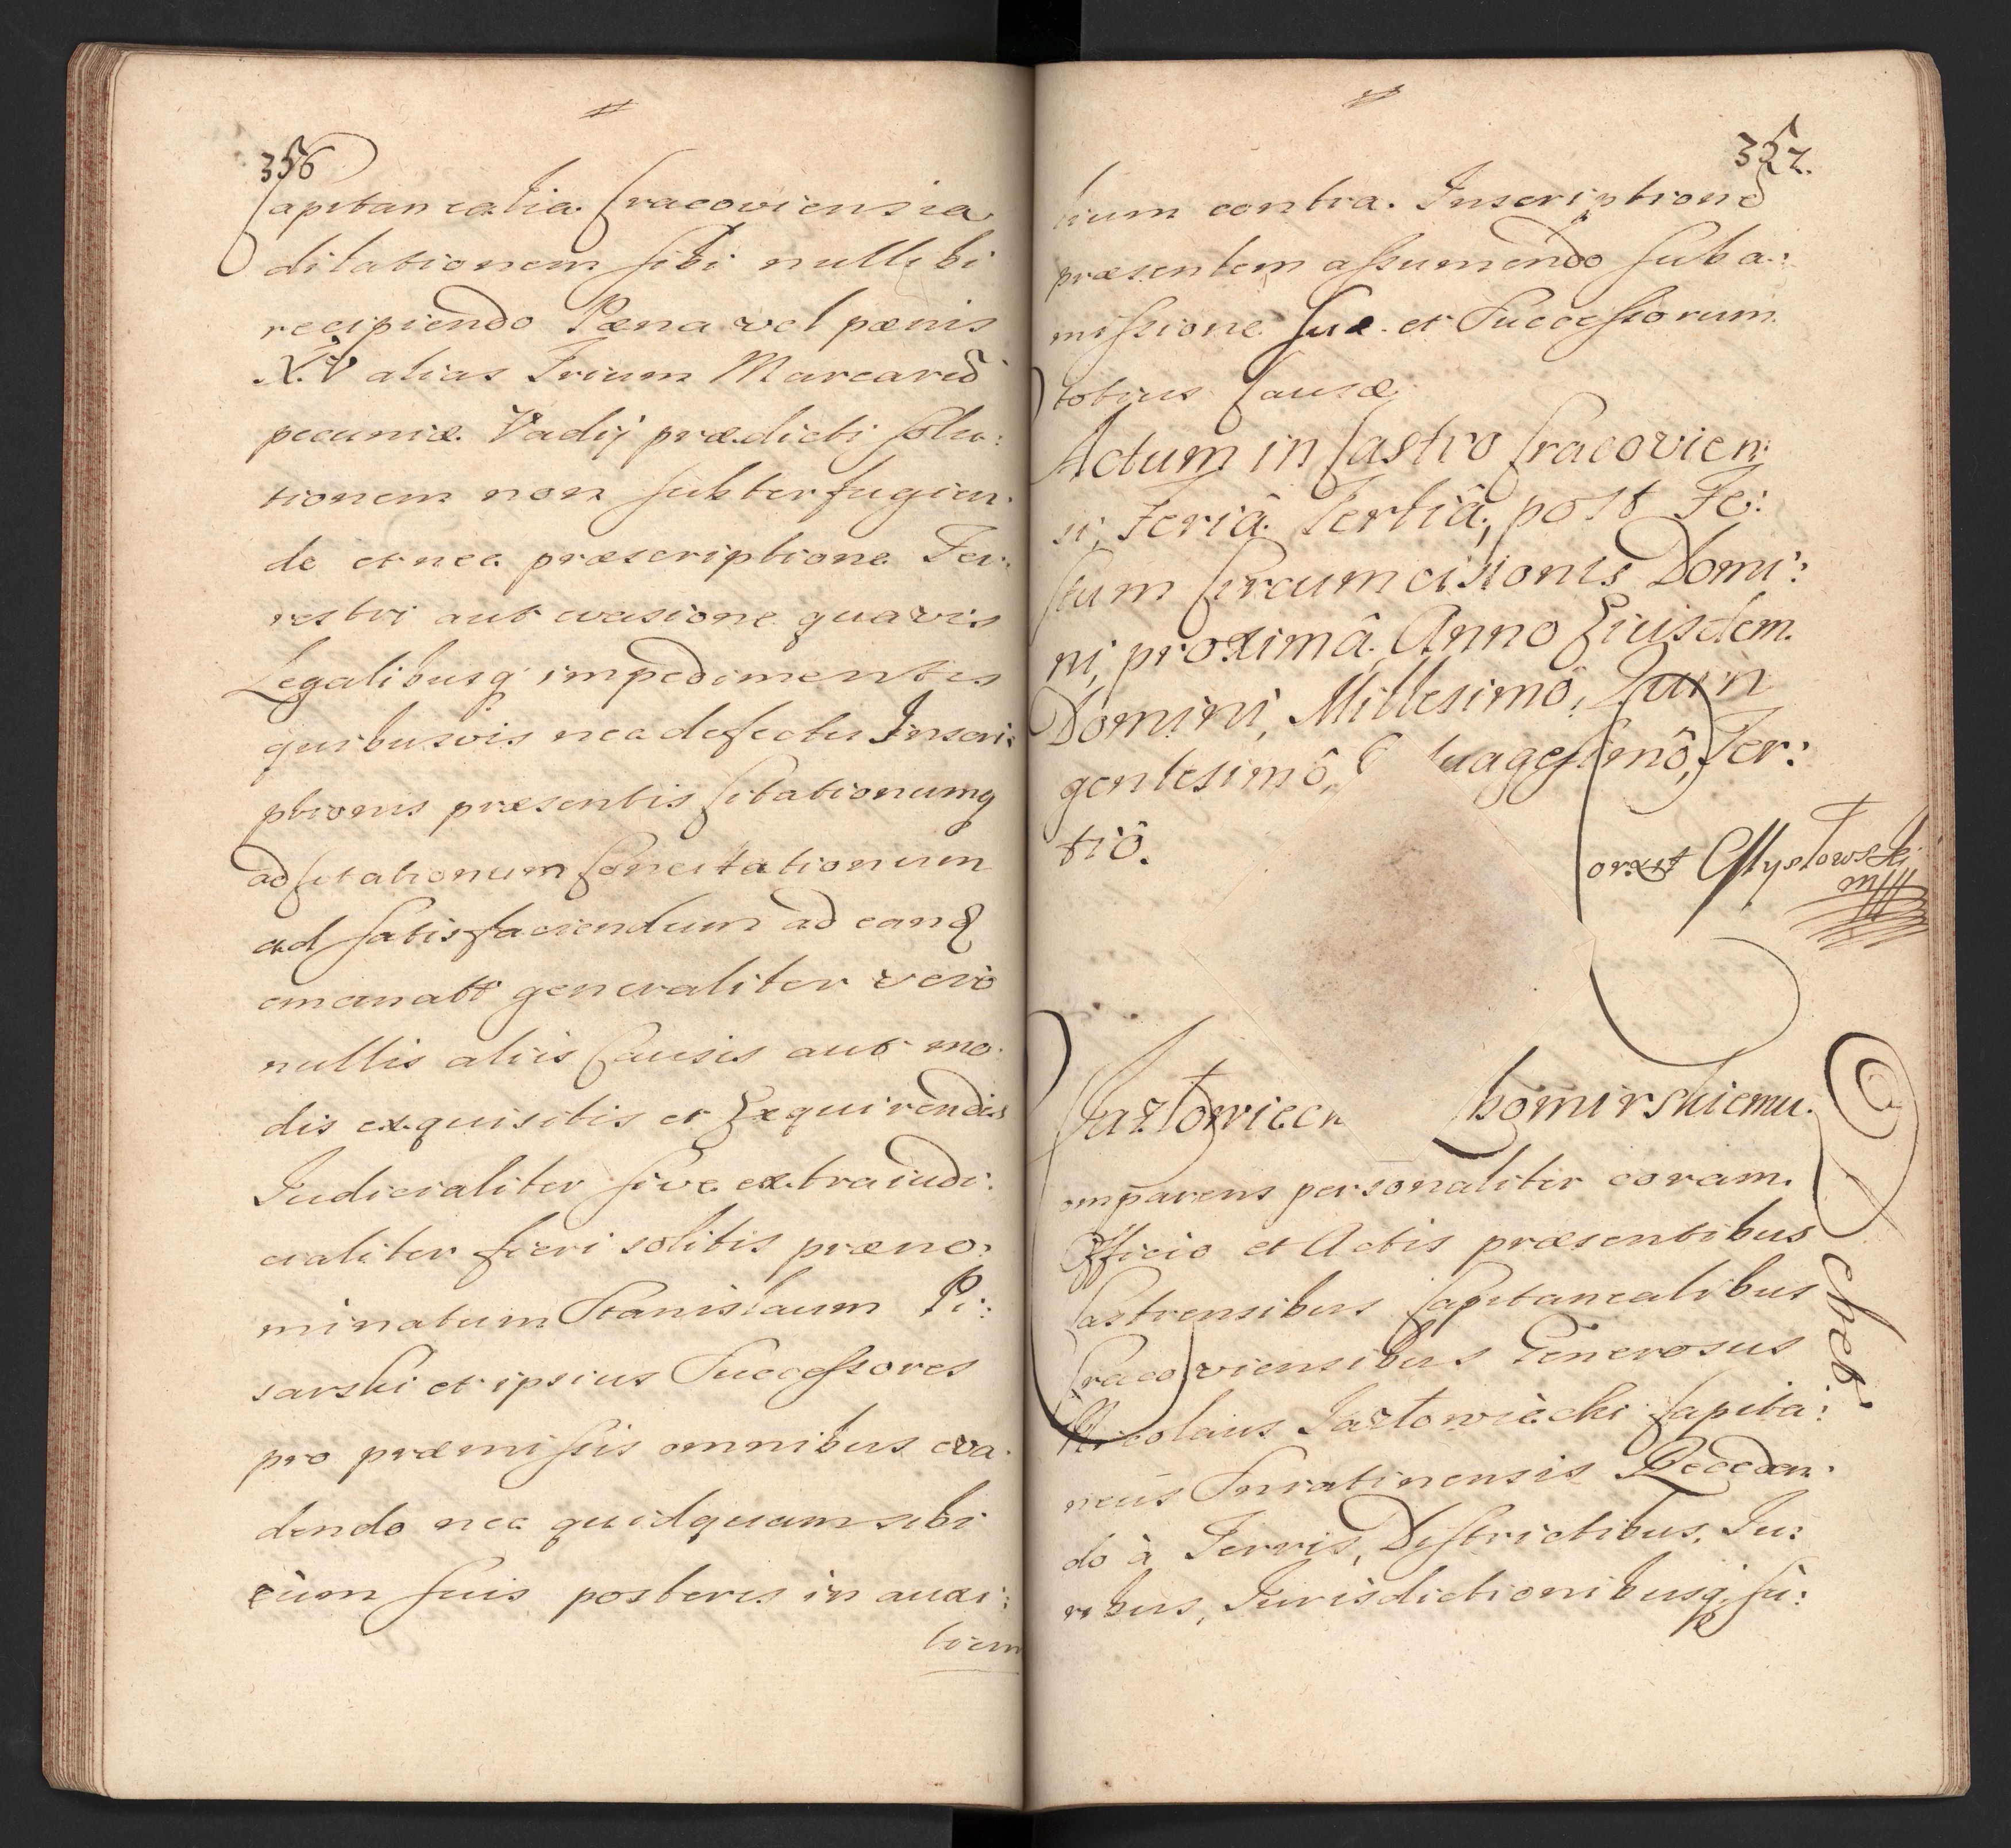 356
Capitanealia Cracoviensia
dilationem sibi nullibi
recipiendo Pæna vel pænis
XV alias Trium Marcarũ
pecuniæ Vadij prædicti solu:
tionem non subterfugien:
do et nec præscriptione Ter:
restri aut evasione quavis
Legalibusq impedimentis
quibusvis nec defectu Inscri:
ptionis præsentis Citationumq
ad Citationum Concitationum
ad satisfaciendum ad eand
emanatt generaliter vero
nullis aliis Causis aut mo:
dis exquisitis et Exquirendis
Iudicialiter sive extraiudi:
cialiter fieri solitis præno:
minatum Stanislaum Pi:
sarski et ipsius Successores
pro præmissis omnibus eva:
dendo nec quidquam sibi
cum suis posteris in auxi:
lium
357.
lium contra Inscriptionẽ
præsentem assumendo suba:
missione suæ et Successorum
totius Causæ
Actum in Castro Cracovien:
si, Feriâ Tertiâ, post Fe:
stum Circumcisionis Domi:
ni, proximâ Anno Eiusdem
Domini, Millesimô, Quin
gentesimô, uagesimô, Ter:
tiô.
orxit Mysłowski
mp
Jazłowieck homirskiemu.
Comparens personaliter coram
Officio et Actis præsentibus
Castrensibus Capitanealibus
Cracoviensibus Generosus
Nicolaus Jazłowiecki Capita:
neus Sniatinensis Receden:
do à Terris, Districtibus, Iu:
ribus, Iurisdictionibusq, su: